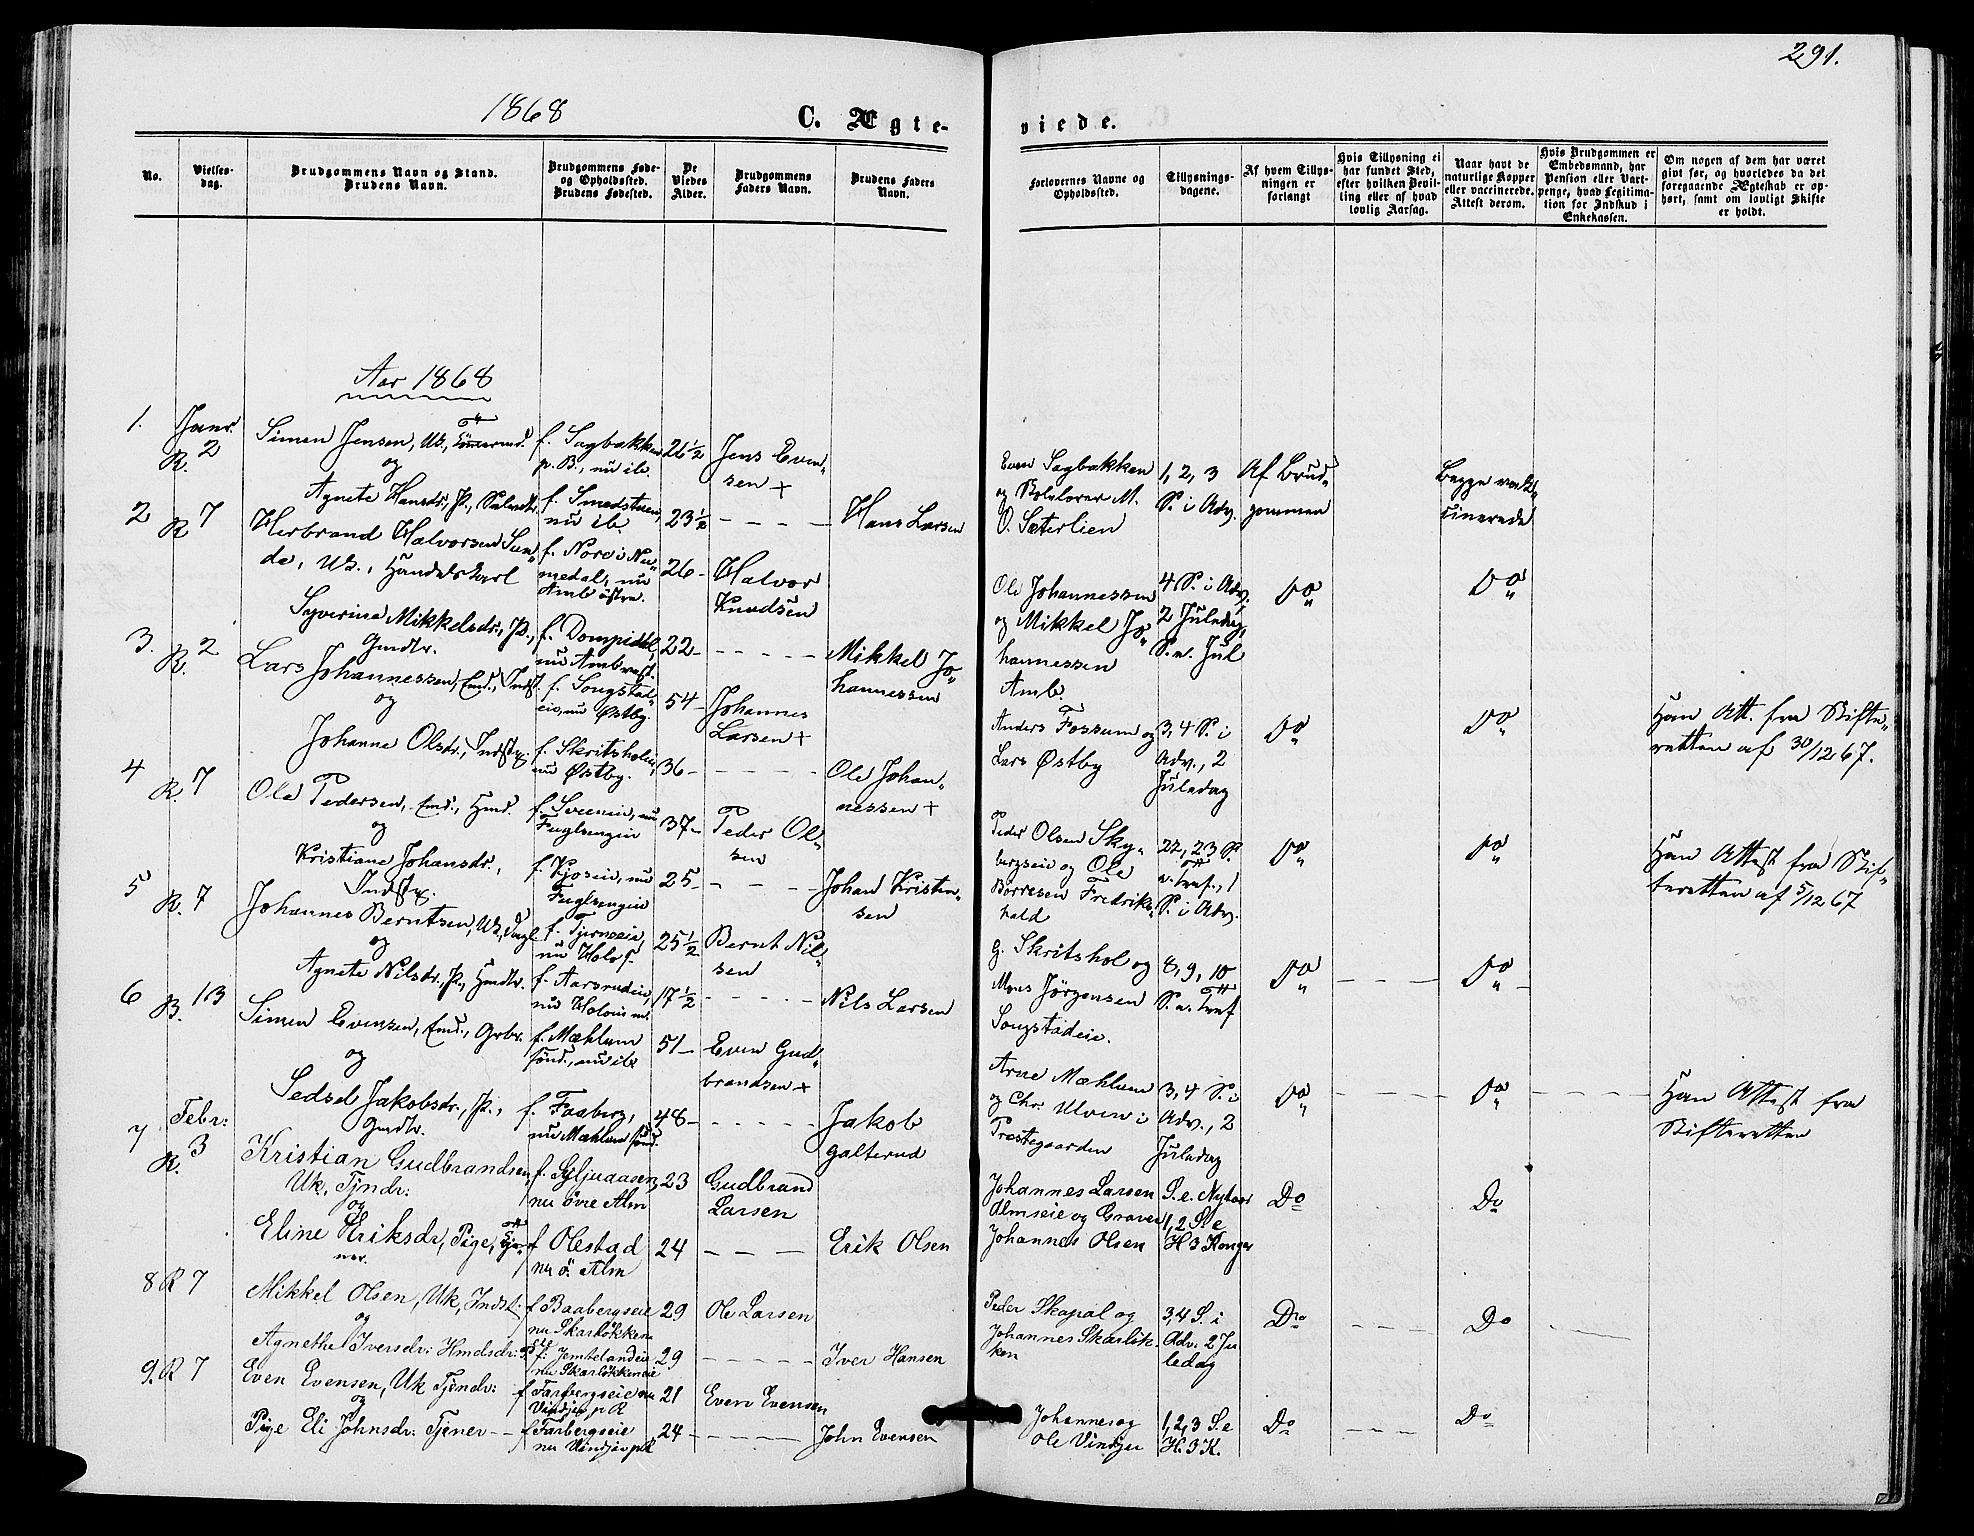 291.
1868
C. Ægte-
viede.
No.
Vielses-
dag.
Brudgommens Navn og Stand.
Brudens Navn.
Brudgommens Føde-
og Opholdssted.
Brudens Fødested.
De
Viedes
Alder.
Brudgommens
Faders Navn.
Brudens Faders
Navn.
Forlovernes Navne og
Opholdssted.
Tillysnings-
dagene.
Af hvem Tillys-
ningen er
forlangt
Hvis Tillysning ei
har fundet Sted,
efter hvilken Bevil-
ling eller af hvad
lovlig Aarsag.
Naar havt de
naturlige Kopper
eller vaccinerede.
Attest derom.
Hvis Brudgommen er
Embedsmand, har
Pension eller Vart-
penge, hvad Legitima-
tion for Indskud i
Enkekassen.
Om nogen af dem har været
givt før, og hvorledes da det
foregaaende Ægteskab er op-
hørt, samt om lovligt Skifte
er holdt.
Aar 1868
1. Janr. R. 2
Simen Jensen, Uk.,
og
Agnete Hansdr., P.,
f. Sagbakken
p. B., nu ib.
26 1/2
Jens Even-
sen +
f. Smedstuen,
nu ib.
23 1/2
- - - -
Hans Larsen
Even Sagbakken
og Skolelærer M.
O. Sæterlien
1, 2, 3
S. i Adv.
Af Brud-
gommen
Begge vak-
cinerede
2 R 7
Herbrand Halvorsen Sun-
de, Uk., Handelskarl
Syverine Mikkelsdr., P.,
Gmdtr.
f. Nore i Nu-
medal, nu
Amb østre.
26 -
Halvor
Knudsen
f. Dompidal,
nu Amb vest.
22 -
- - - - -
Mikkel Jo-
hannessen
Ole Johannessen
og Mikkel Jo-
hannessen
Amb
4 S. i Adv,
2 Juledag,
S. n. Jul
Do
Do
3. R. 2
Lars Johannessen, Emd., Indst.
og
Johanne Olsdr., Indst.
f. Songstad-
eie, nu Østby.
54 -
Johannes
Larsen +
f. Skritsholeie,
nu Østby.
36 -
- - - -
Ole Johan-
nessen +
Anders Fossum og
Lars Østby
3, 4 S. i
Adv., 2
Juledag
Do
Do
Han Att. fra Skifte-
retten af 30/12 67.
4 R. 7
Ole Pedersen, Emd., Hmd.
og
Kristiane Johansdr.,
Indst.
f. Sveeneie, nu
Fuglsengeie
37 -
Peder Ol-
sen
f. Kjoseie, nu
Fuglsengeie
25 -
- - - -
Johan Kristen-
sen
Peder Olsen Sky-
bergseie og Ole
Børresen Fredriks-
hald
22, 23 S.
e. Tref., 1
S. i Adv.
Do
Do
Han Attest fra Skif-
teretten af 5/12 67
5 R. 7
Johannes Berntsen, Uk.,
og
Agnete Nilsdr., P., Hmdtr.
f. Tjerneeie,
nu Holo s.
25 1/2
Bernt Nil-
sen
f. Aarsrudeie,
nu Holoie
17 1/2
- - - -
Nils Larsen
G. Skritshol og
Mons Jörgensen
Songstadeie.
8, 9, 10
S. e. Tref
Do
- - - -
Do
6 B. 13
Simen Evensen, Emd., Grbr.
og
Sedsel Jakobsdr., P.,
Gmdtr.
f. Mæhlum
sønd., nu ib
51 -
Even Gud-
brandsen +
f. Faaberg,
nu Mæhlum sønd.
48 -
- - - -
Jakob
Galterud
Arne Mæhlum
og Chr. Ulven i
Præstegaarden
3, 4 S. i
Adv., 2
Juledag
Do
- - - -
Do
- - - -
Han Attest fra
Skifteretten
7 Febr: R. 3
Kristian Gudbrandsen,
Uk, Tjndr:
og
Eline Eriksdr, Pige, Tje-
ner.
f. Gyljuaasen,
nu øvre Alm
23
Gudbrand
Larsen
f Olestad
nu ö. Alm
24
- - -
Erik Olsen
Johannes Larsen
Almseie og Graver
Johannes Olsen
S. e. Nytaar
1, 2 S. e
H 3 Konger
Do
Do
8 R 7
Mikkel Olsen, Uk, Indst:
og
Agnethe Iversdr: Hmdsdr: P.
f Baabergseie
nu Skarløkken
eie
29
Ole Larsen
f. Jemtelandeie
nu Skarløkkeneie
29
- - - -
Iver Hansen
Peder Skapal og
Johannes Skarløk-
ken
3, 4 S. i
Adv. 2 Ju
ledag
Do
- - - -
Do
- - - -
9. R 7
Even Evensen, Uk Tjendr:
og
Pige Eli Johnsdr: Tjener - -
f Farbergseie nu
Vindju p R
21
Even Evensen
f Farbergseie
nu Vindju p R
24
- - - -
John Evensen
Johannes og
Ole Vindju
1, 2, 3 S. e
H. 3 K.
Do
- - - -
Do